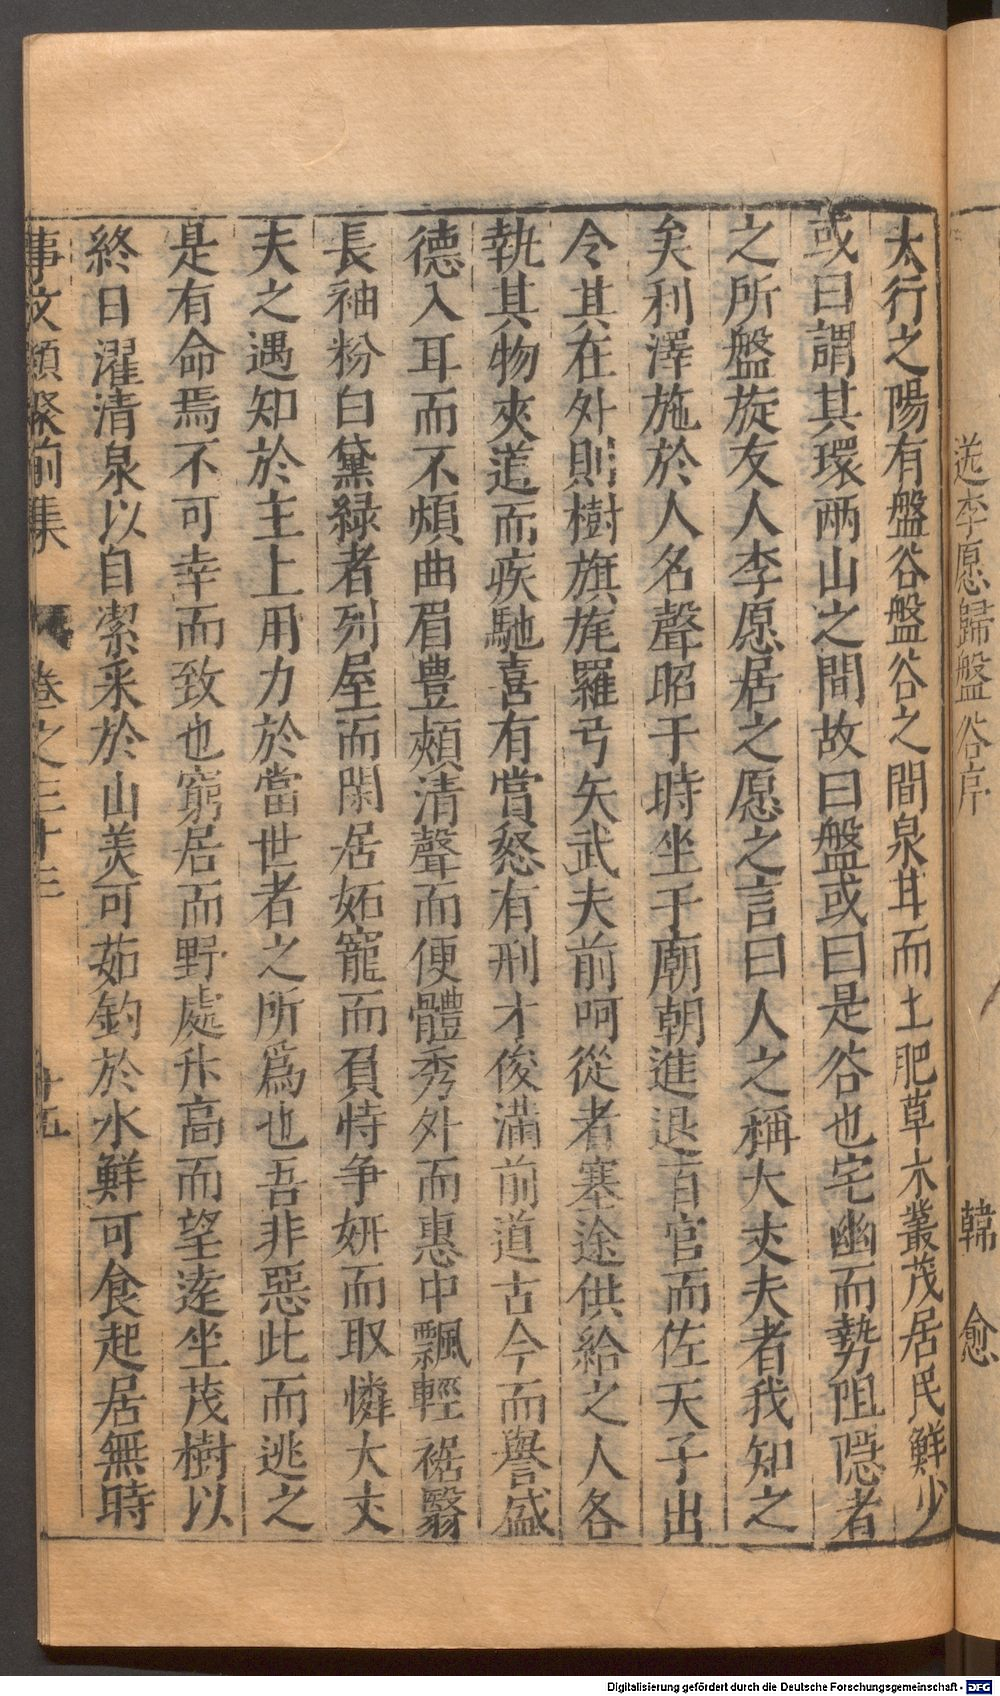 送李愿歸盤谷序 韓愈
太行之陽有盤谷盤谷之間泉甘而土肥草木叢茂居民鮮少
或曰謂其環兩山之間故曰盤或曰是谷也宅幽而勢阻隱者
之所盤旋友人李愿居之愿之言曰人之稱大丈夫者我知之
矣利澤施於人名聲昭于時坐于廟朝進退百官而佐天子出
令其在外則樹旗旄羅弓矢武夫前呵從者塞途供給之人各
執其物夾道而疾馳喜有賞怒有刑才俊滿前道古今而譽盛
德入耳而不煩曲眉豊頰清聲而便體秀外而惠中飄輕裾翳
長袖粉白黛緑者列屋而閑居妬寵而負恃争妍而取憐大丈
夫之遇知於主上用力於當世者之所爲也吾非惡此而逃之
是有命焉不可幸而致也窮居而野處升高而望遠坐茂樹以
終日濯清泉以自潔采於山美可茹釣於水鮮可食起居無時
事文類聚前集 卷之三十三 十五
Digitalisierung gefördert durch die Deutsche Forschungsgemeinschaft - DFG